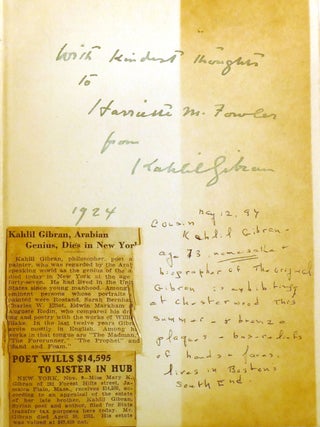 With kindest thoughts
to
Harriette M. Fowler
from
Kahlil Gibran
1924
May 12, 94
Cousin
Kahlil Gibran -
age 73, namesake &
biographer of the original
Gibran is exhibiting
at Chesterwood this
summer, 4 bronze
plaques - bas-reliefs
of hands & faces.
lives in Bostons
South End.
Kahlil Gibran, Arabian
Genius, Dies in New York
Kahlil Gibran, philosopher, poet a
painter, who was regarded by the Arab
speaking world as the genius of the a
died today in New York at the age
forty-seven. He had lived in the Unit
States since young manhood. Among
eminent persons whose portraits
painted were Rostand, Sarah Bernhar
Charles W. Eliot, Edwin Markham a
Auguste Rodin, who compared his dra
ing and poetry with the works of Willi
Blake. In the last twelve years Gibr
wrote mostly in English. Among h
works in that tongue are "The Madman,"
"The Forerunner," "The Prophet" and
"Sand and Foam."
POET WILLS $14,595
TO SISTER IN HUB
NEW YORK, Nov. - Miss Mary K.
Gibran of 281 Forest Hills street, Ja-
maica Plain, Mass., receives $14,595, ac-
cording to an appraisal of the estate
of her late brother, Kahlil Gibran,
Syrian poet and author, filed for State
transfer tax purposes here today. Mr.
Gibran died April 10, 1931. His estate
was valued at